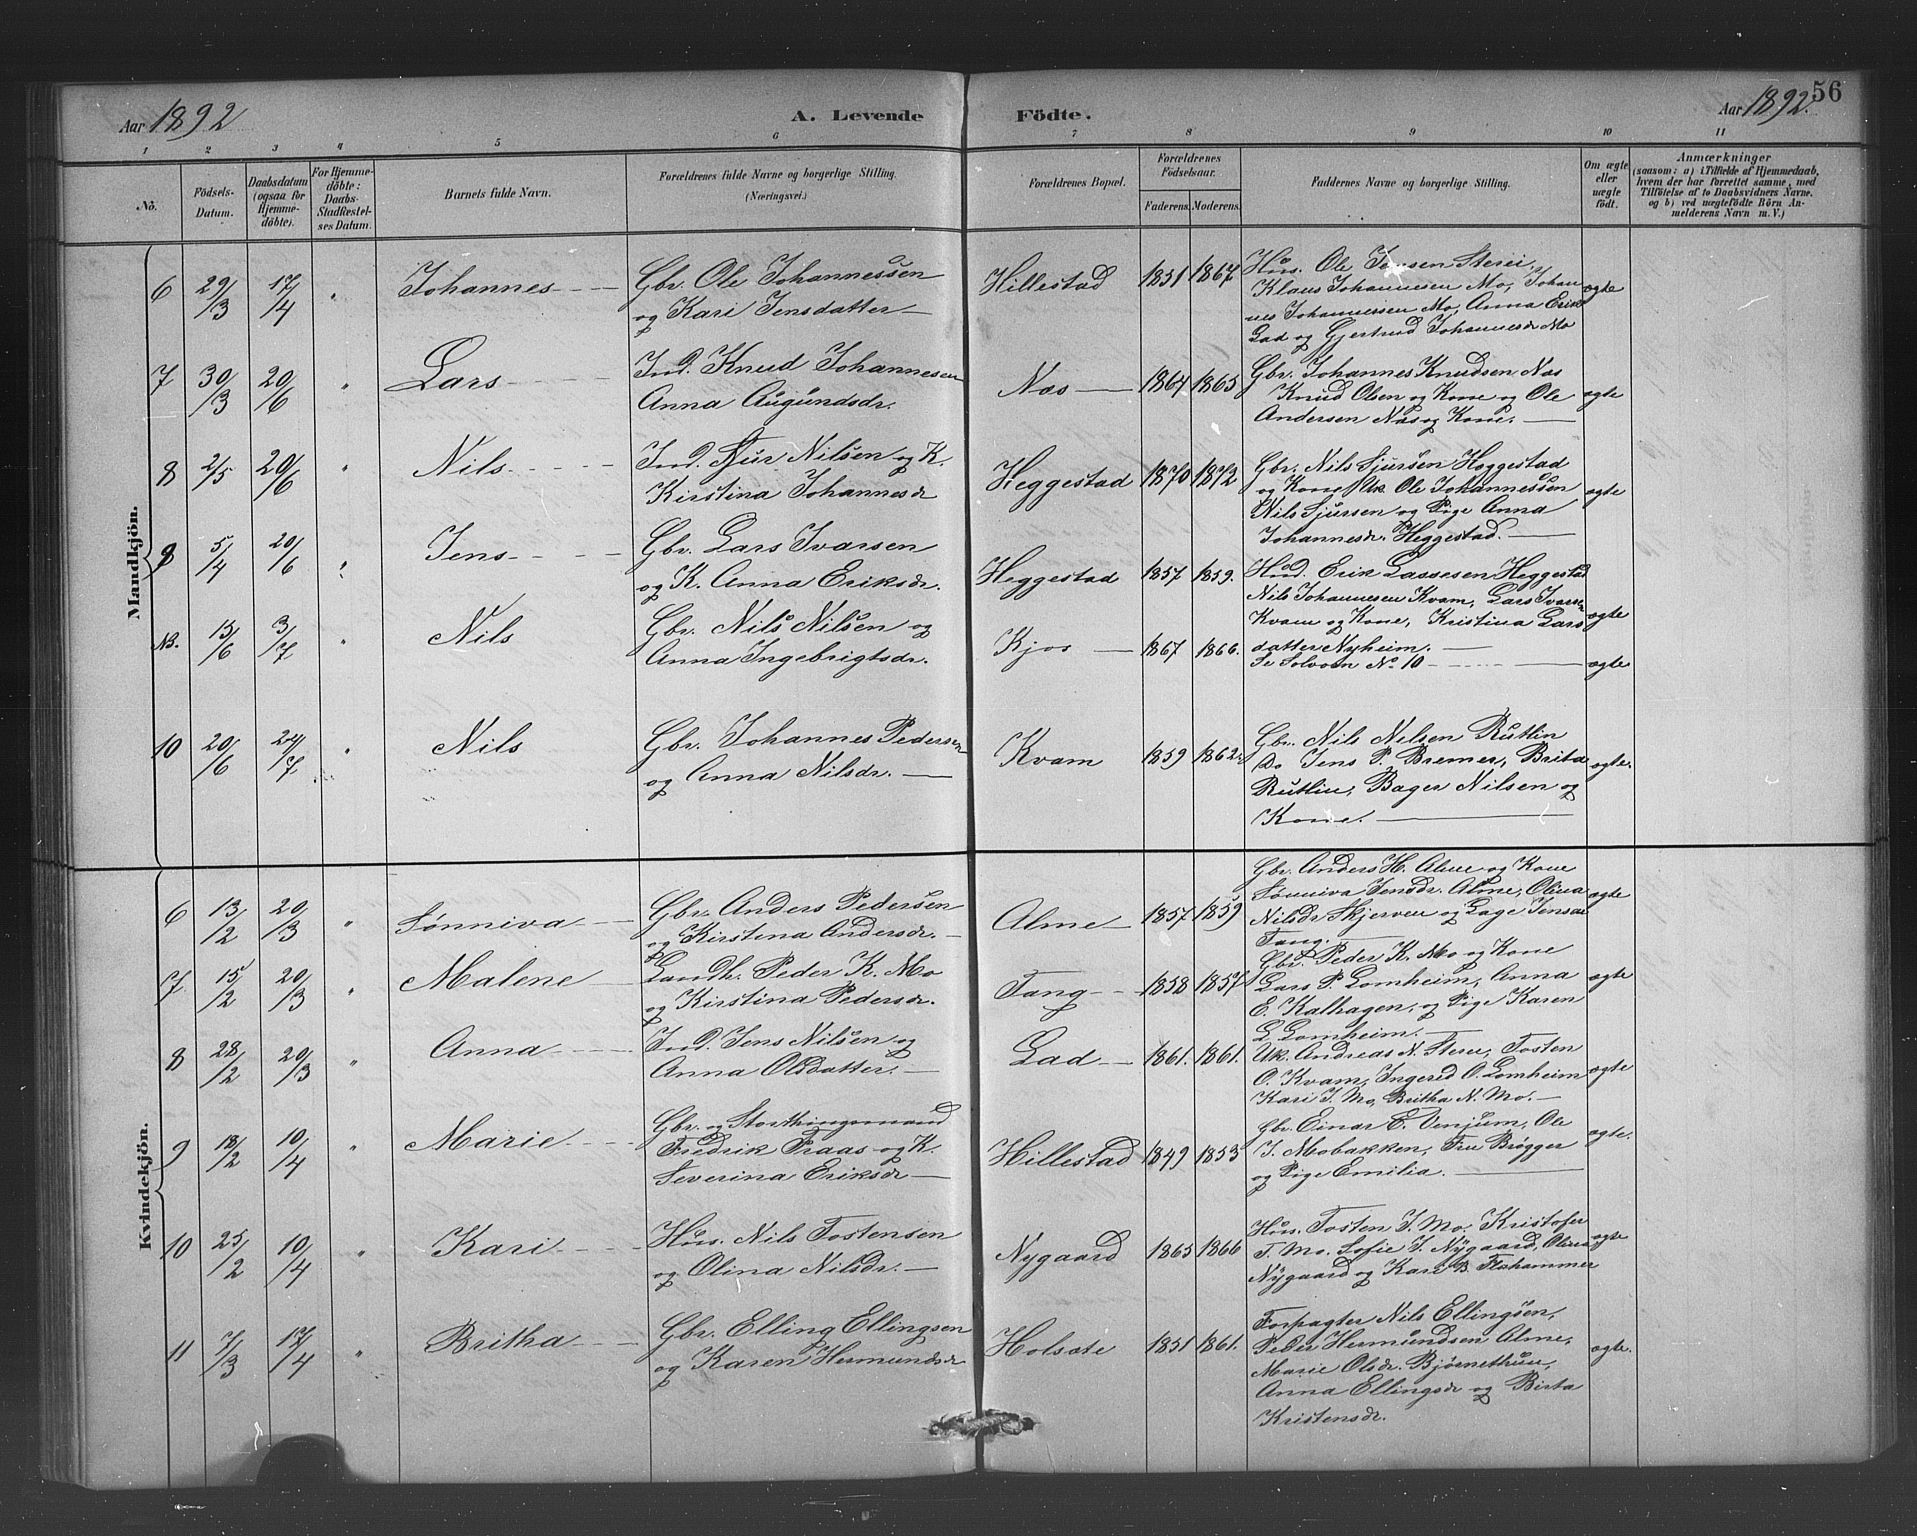 Aar 1892
A. Levende Födte.
Aar 1892. 56
1 2 3 4 5 6 7 8 9 10 11
No.
Födsels-Datum.
Daabsdatum (ogsaa for Hjemme-döbte).
For Hjemme-döbte: Daabs-Stadfæstel-ses Datum.
Barnets fulde Navn.
Forældrenes fulde Navne og borgerlige Stilling.
(Næringsvei.)
Forældrenes Bopæl.
Forældrenes Födselsaar.
Faderens. Moderens.
Faddernes Navne og borgerlige Stilling.
Om ægte eller uægte födt.
Anmærkninger
(saasom: a) i Tilfælde af Hjemmedaab,
hvem der har forrettet samme, med
Tilföielse af to Daabsvidners Navne.
og b) ved uægtefödte Börn An-
melderens Navn m. V.)
Mandkjön.
6 29/3 17/4 " Johannes
Gbr. Ole Johannessen
og Kari Jensdatter
Hillestad 1851 1867
Hus. Ole Jensen Sterei,
Klaus Johannesen Mo, Johan
nes Johannessen Mo, Anna Erik
Lad og Gjertrud Johannesdr Mo
ægte
7 30/3 20/6 " Lars
Ind. Knud Johannesen
Anna Augundsdr.
Nos 1864 1865
Gbr. Johannes Knudsen Nos
Knud Olsen og Kone og Ole
Andersen Nos og Kone.
ægte
8 2/5 20/6 " Nils
Ind. Sjur Nilsen og K.
Kirstina Johannesdr
Heggestad 1870 1872
Gbr. Nils Sjursen Heggestad
og Kone, Uk. Ole Johannessen
Nils Sjursen og Pige Anna
Johannesdr. Heggestad.
ægte
9 5/4 20/6 " Jens
Gbr. Lars Ivarsen
og K. Anna Eriksdr.
Heggestad 1857 1859.
Hud. Erik Lassesen Heggestad
Nils Johannesen Kvam, Lars Ivarsen
Kvam og Kone, Kristina Lars
datter Nyheim.
ægte
NB. 13/6 3/7 " Nils
Gbr. Nils Nilsen og
Anna Ingebrigtsdr.
Kjos 1867 1866.
Se Solvorn No 10
ægte
10 20/6 24/7 " Nils
Gbr. Johannes Pedersen
og Anna Nilsdr.
Kvam 1859 1862
Gbr. Nils Nelsen Rutlin
Do Jens P. Bremer, Brita
Rutlin, Bager Nilsen og
Kone.
ægte.
Kvindekjön.
6 13/2 20/3 " Sønniva
Gbr. Anders Pedersen
og Kirstina Andersdr.
Alme 1857 1859
Gbr. Anders H. Alme og Kone
Sønniva Jensdr. Alme, Olina
Nilsdr Skjerven og Lage Jensdr
Tang.
ægte
7 15/2 20/3 " Malene
Landh. Peder K. Mo
og Kirstina Pedersdr.
Tang 1858 1857
Gbr. Peder K. Mo og Kone
Lars P. Lomheim, Anna
E. Kalhagen, og Pige Karen
L. Lomheim.
ægte
8 28/2 20/3 " Anna
Ind. Jens Nilsen og
Anna Olsdatter.
Lad 1861. 1861.
Uk. Andreas N. Steree, Tosten
O. Kvam, Ingered O. Lomheim
Kari J. Mo, Britha N. Mo.
ægte
9 18/2 10/4 " Marie
Gbr. og Storthingsmand
Fredrik Traas og K.
Severina Eriksdr
Hillestad 1849 1853
Gbr. Einar E. Venjum, Ole
J. Mobakken, Fru Brøgger
og Pige Emilia.
ægte.
10 25/2 10/4 " Kari
Hus. Nils Tostensen
og Olina Nilsdr.
Nygaard 1865 1866
Hus. Tosten J. Mo, Kristofer
T. Mo. Sofie J. Nygaard, Olina
Nygaard og Kari B. Flahammer
ægte
11 7/3 17/4 " Britha
Gbr. Elling Ellingsen
og Karen Hermundsdr
Holsæte 1851 1861.
Forpagter Nils Ellingsen,
Peder Hermundsen Alme,
Marie Olsdr. Bjørnethun,
Anna Ellingsdr og Birta
Kristensdr.
ægte.